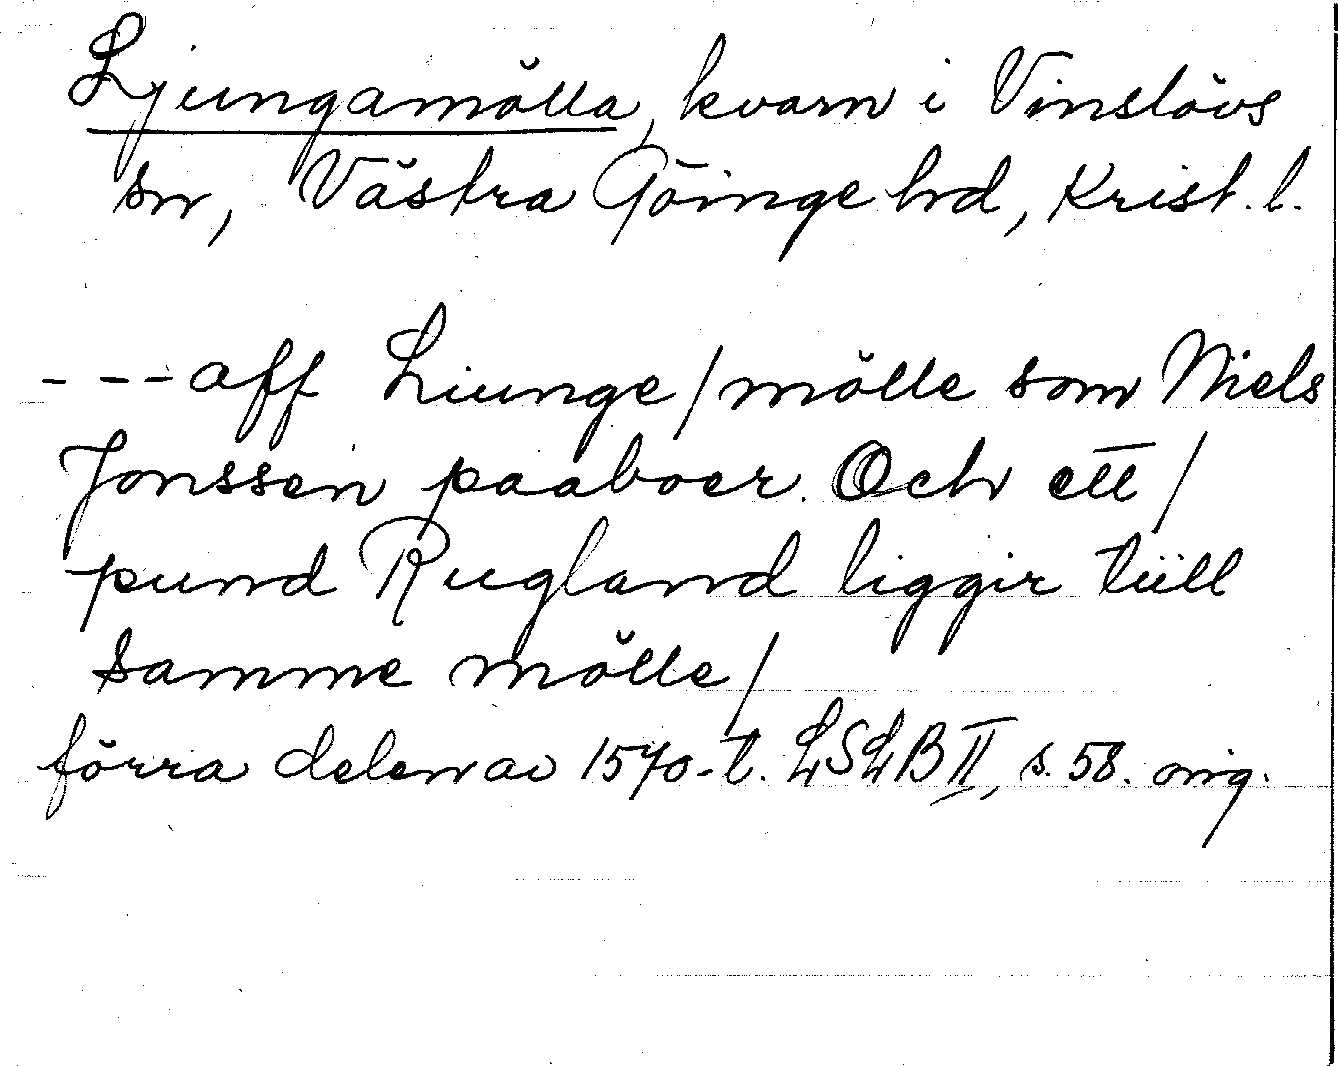 Ljungamölla, kvarn i Vinslövs
sn, Västra Göinge hd, Krist. l.
---aff Liunge/mölle som Niels
Jonssen paaboer. Och ett/
pund Rugland liggir tiill
samme mölle/
förra delen av 1570-t. LSLB II, s. 58. orig.